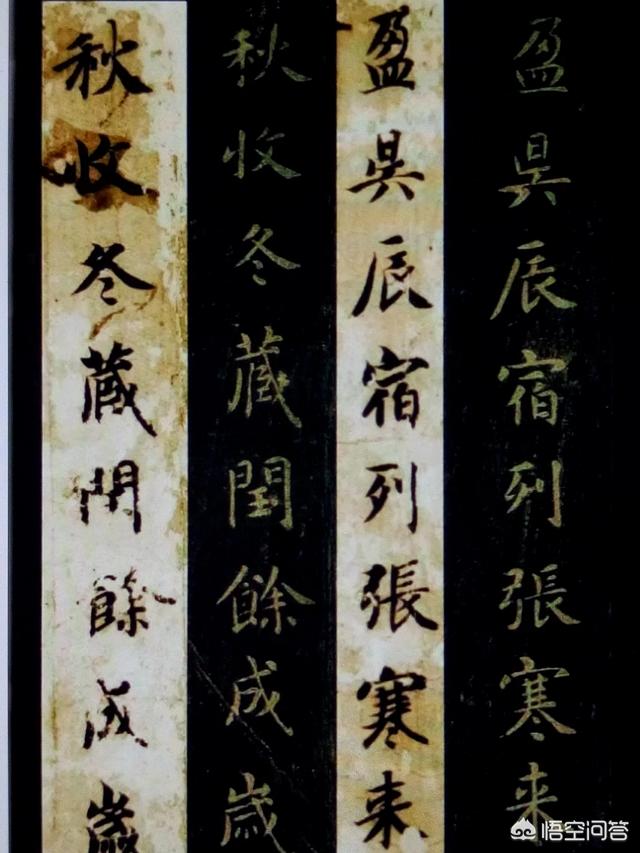 盈昃辰宿列張寒来
盈昃辰宿列張寒来
秋收冬藏閏餘成歳
秋收冬藏閏餘成歳
悟空问答